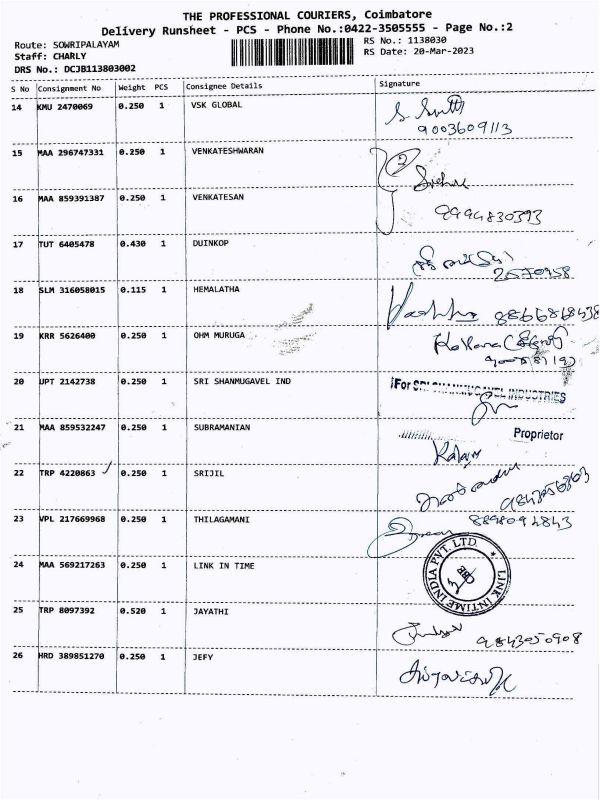 THE PROFESSIONAL COURIERS, Coimbatore
Delivery Runsheet - PCS - Phone No.:0422-3505555 - Page No.:2
Route: SOWRIPALAYAM
RS No.: 1138030
Staff: CHARLY
RS Date: 20-Mar-2023
DRS No.: DCJB113803002
S No Consignment No Weight PCS Consignee Details Signature
14 KMU 2470069 0.250 1 VSK GLOBAL
9003609113
15 MAA 296747331 0.250 1 VENKATESHWARAN
2
16 MAA 859391387 0.250 1 VENKATESAN
9994830393
17 TUT 6405478 0.430 1 DUINKOP
2570958
18 SLM 316058015 0.115 1 HEMALATHA
19 KRR 5626400 0.250 1 OHM MURUGA
20 UPT 2142738 0.250 1 SRI SHANMUGAVEL IND
For SRI SHANMUGAVEL INDUSTRIES
21 MAA 859532247 0.250 1 SUBRAMANIAN
Proprietor
22 TRP 4220863 0.250 1 SRIJIL
23 VPL 217669968 0.250 1 THILAGAMANI
8898094843
24 MAA 569217263 0.250 1 LINK IN TIME
LINK INTIME INDIA PVT. LTD.
25 TRP 8097392 0.520 1 JAYATHI
9843050908
26 HRD 389851270 0.250 1 JEFY